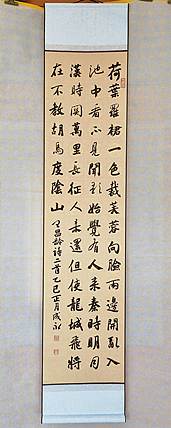 荷葉羅裙一色裁芙蓉向臉兩邊開亂入
池中看不見聞歌始覺有人來秦時明月
漢時關萬里長征人未還但使龍城飛將
在不教胡馬度陰山 王昌齡詩二首乙巳正月